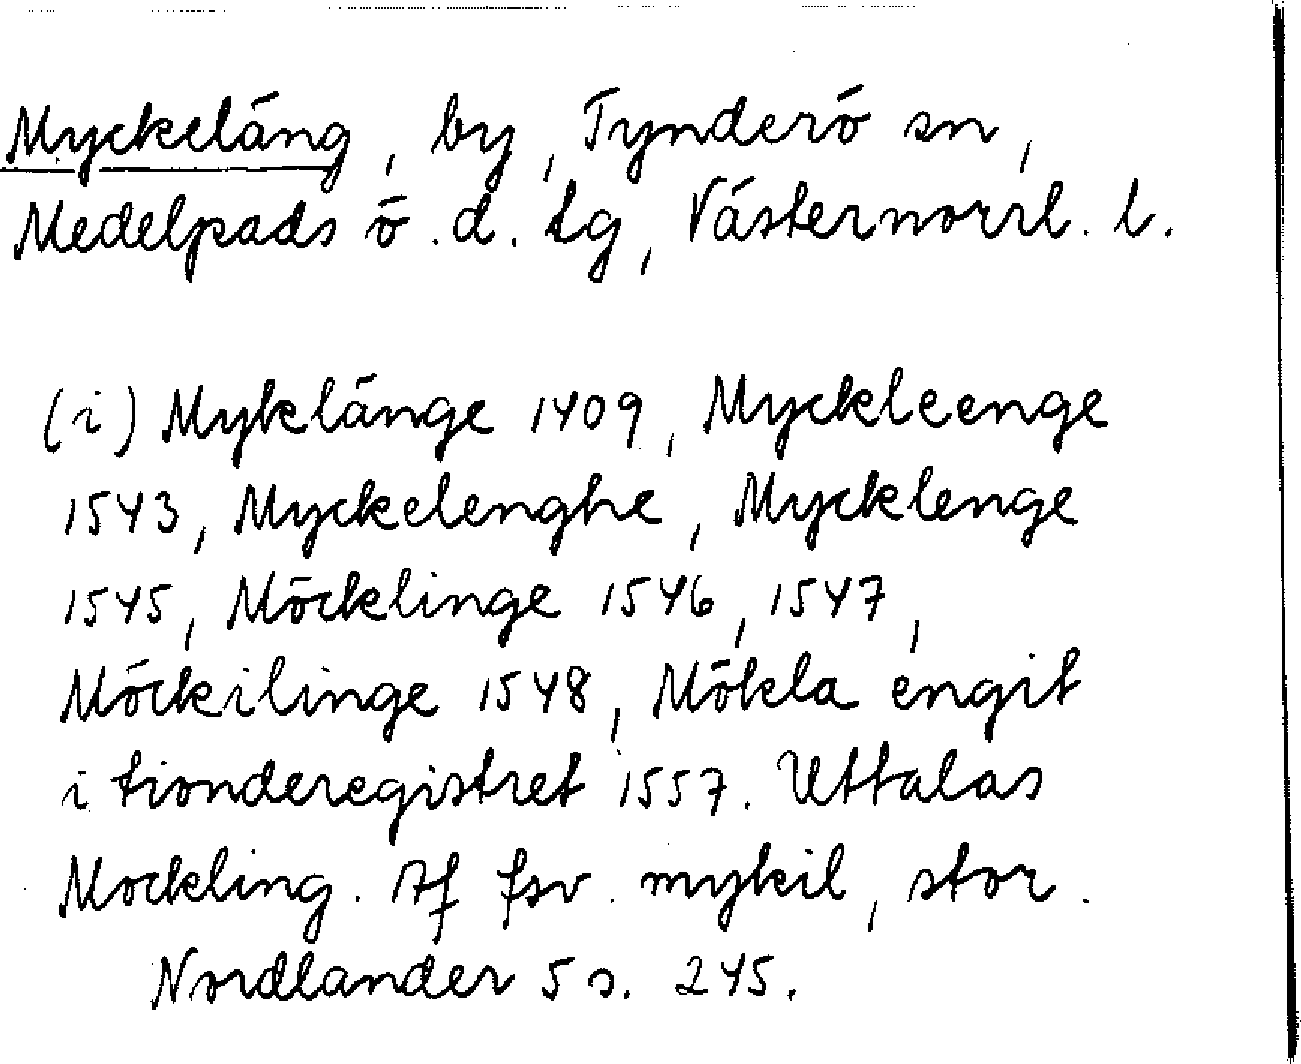 Myckeläng, by, Tynderö sn,
Medelpads ö. d. tg, Västernorrl. l.
(i) Myklänge 1409, Myckleenge
1543, Myckelenghe, Mycklenge
1545, Möcklinge 1546, 1547,
Möckilinge 1548, Mökla engit
i tionderegistret 1557. Uttalas
Mockling. Af fsv. mykil, stor.
Nordlander 5 s. 245.